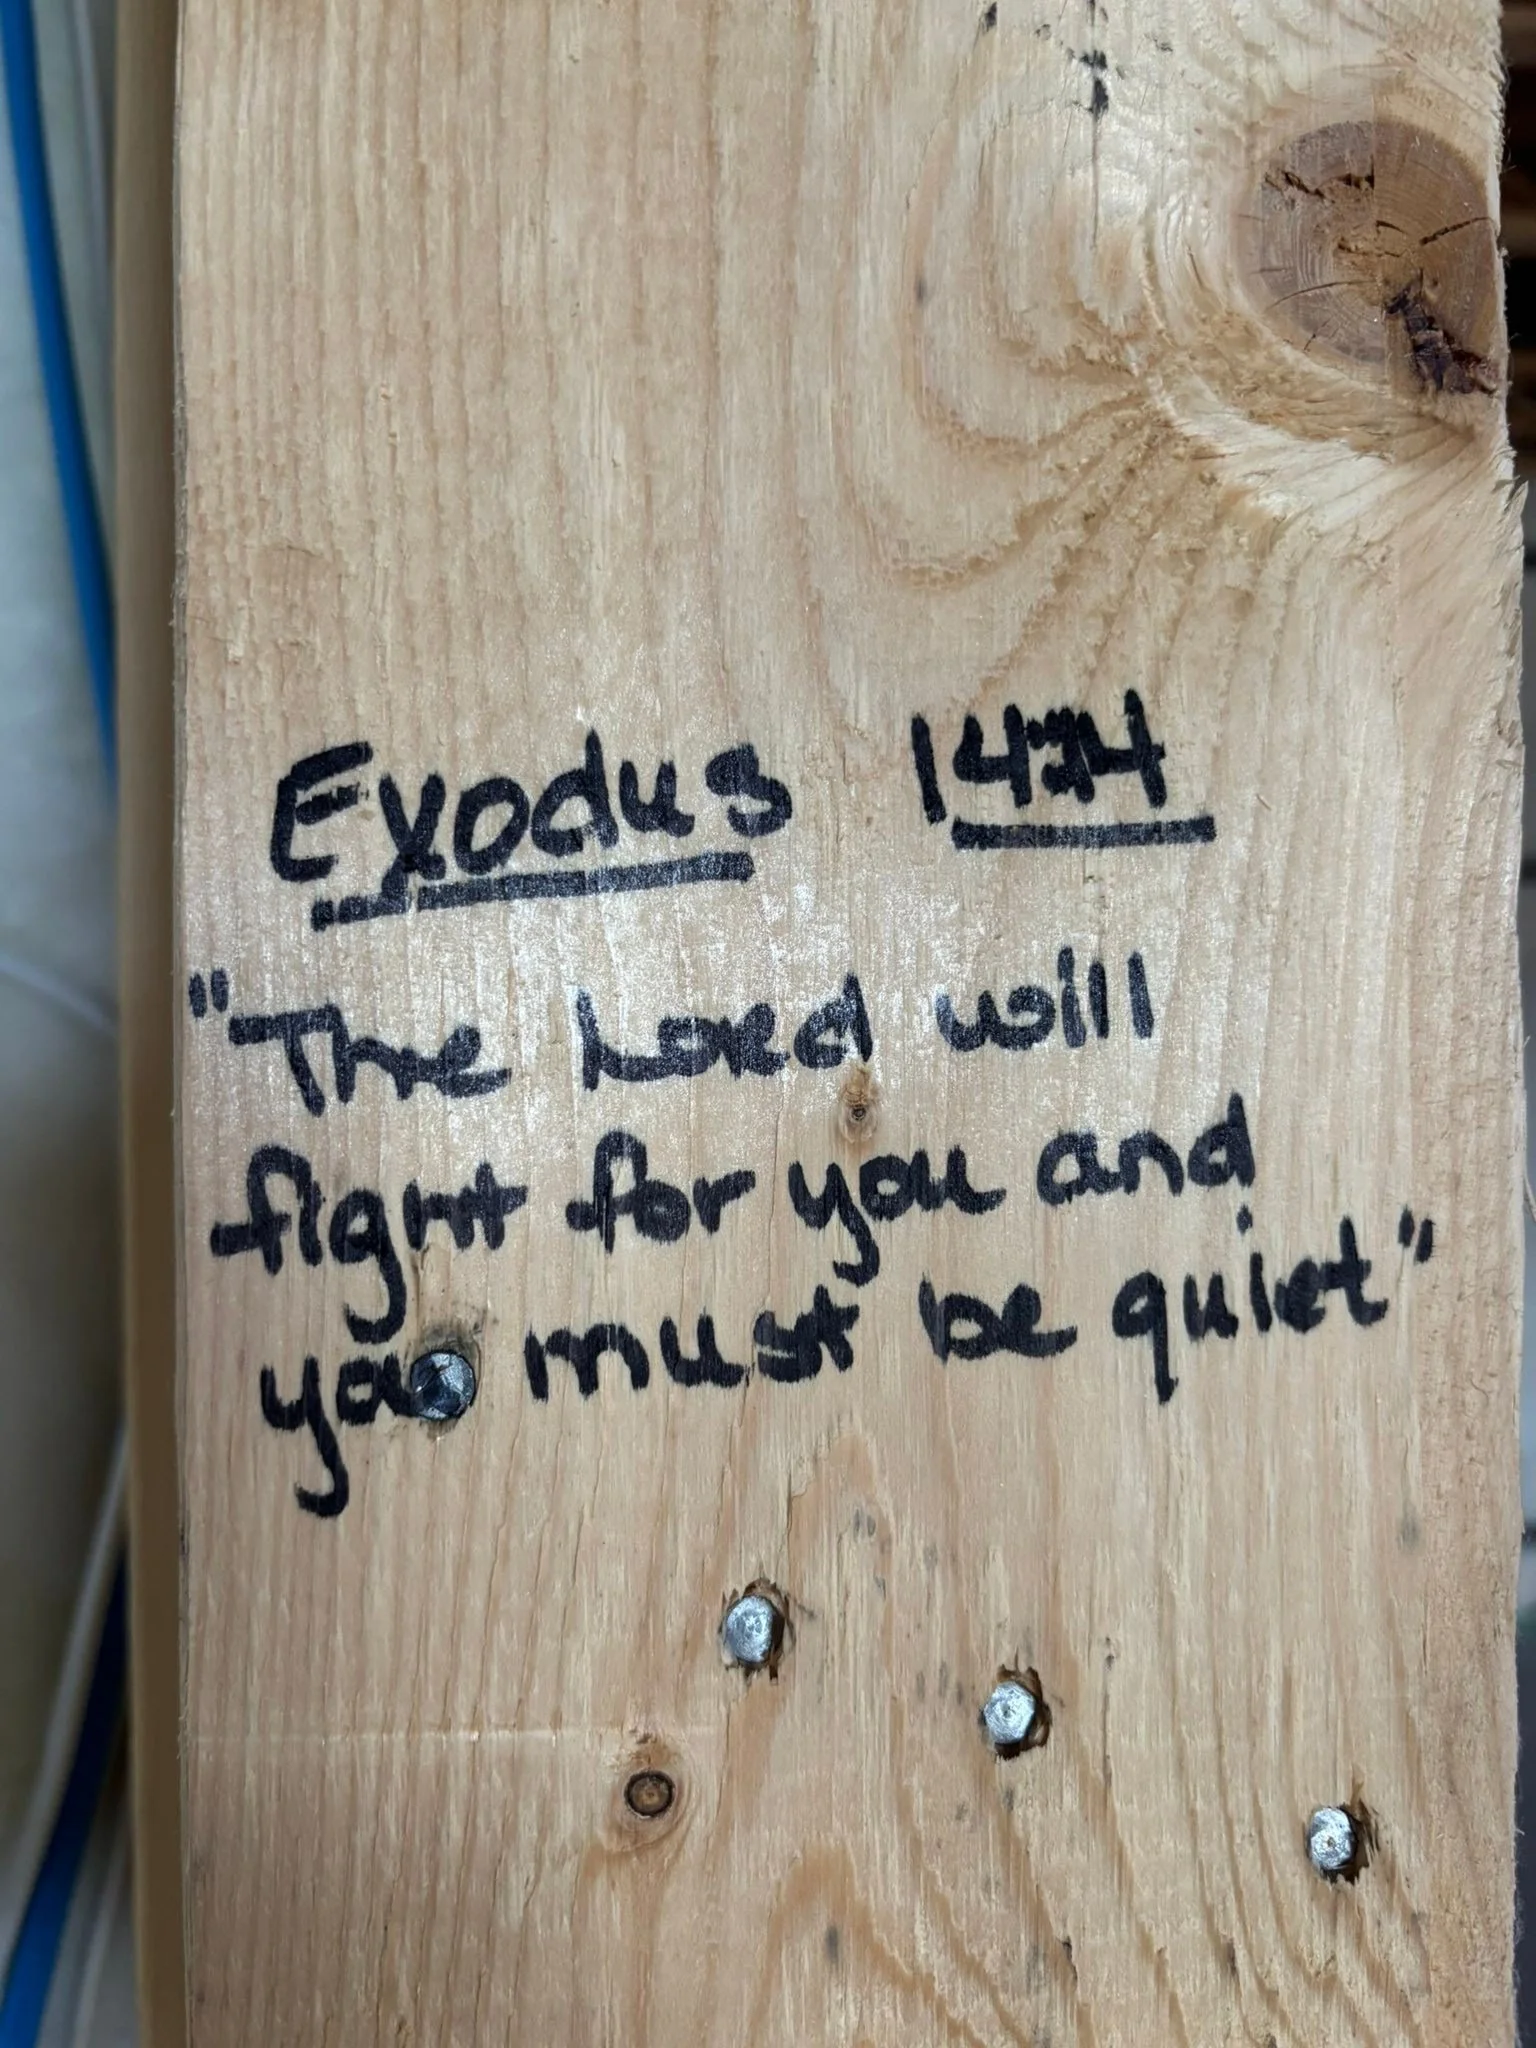 Exodus 14:14
"The Lord will
fight for you and
you must be quiet"